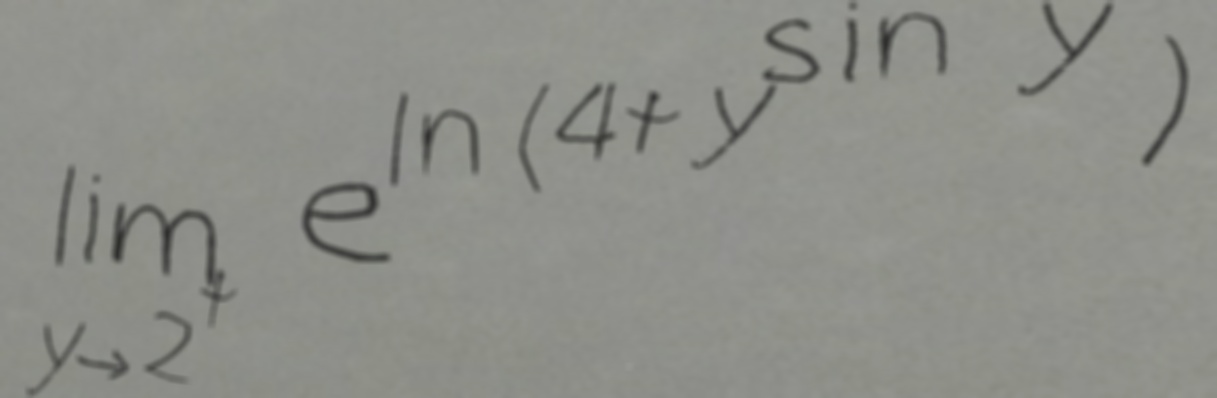 lim_{y→2^+} e^{ln(4+y^{sin y})}